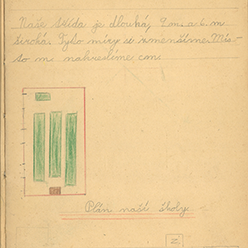 Naše třída je dlouhá, 9 m a 6 m
široká. Tyto míry si zmenšíme. Mís-
to m nakreslíme cm.
Plán naší školy.